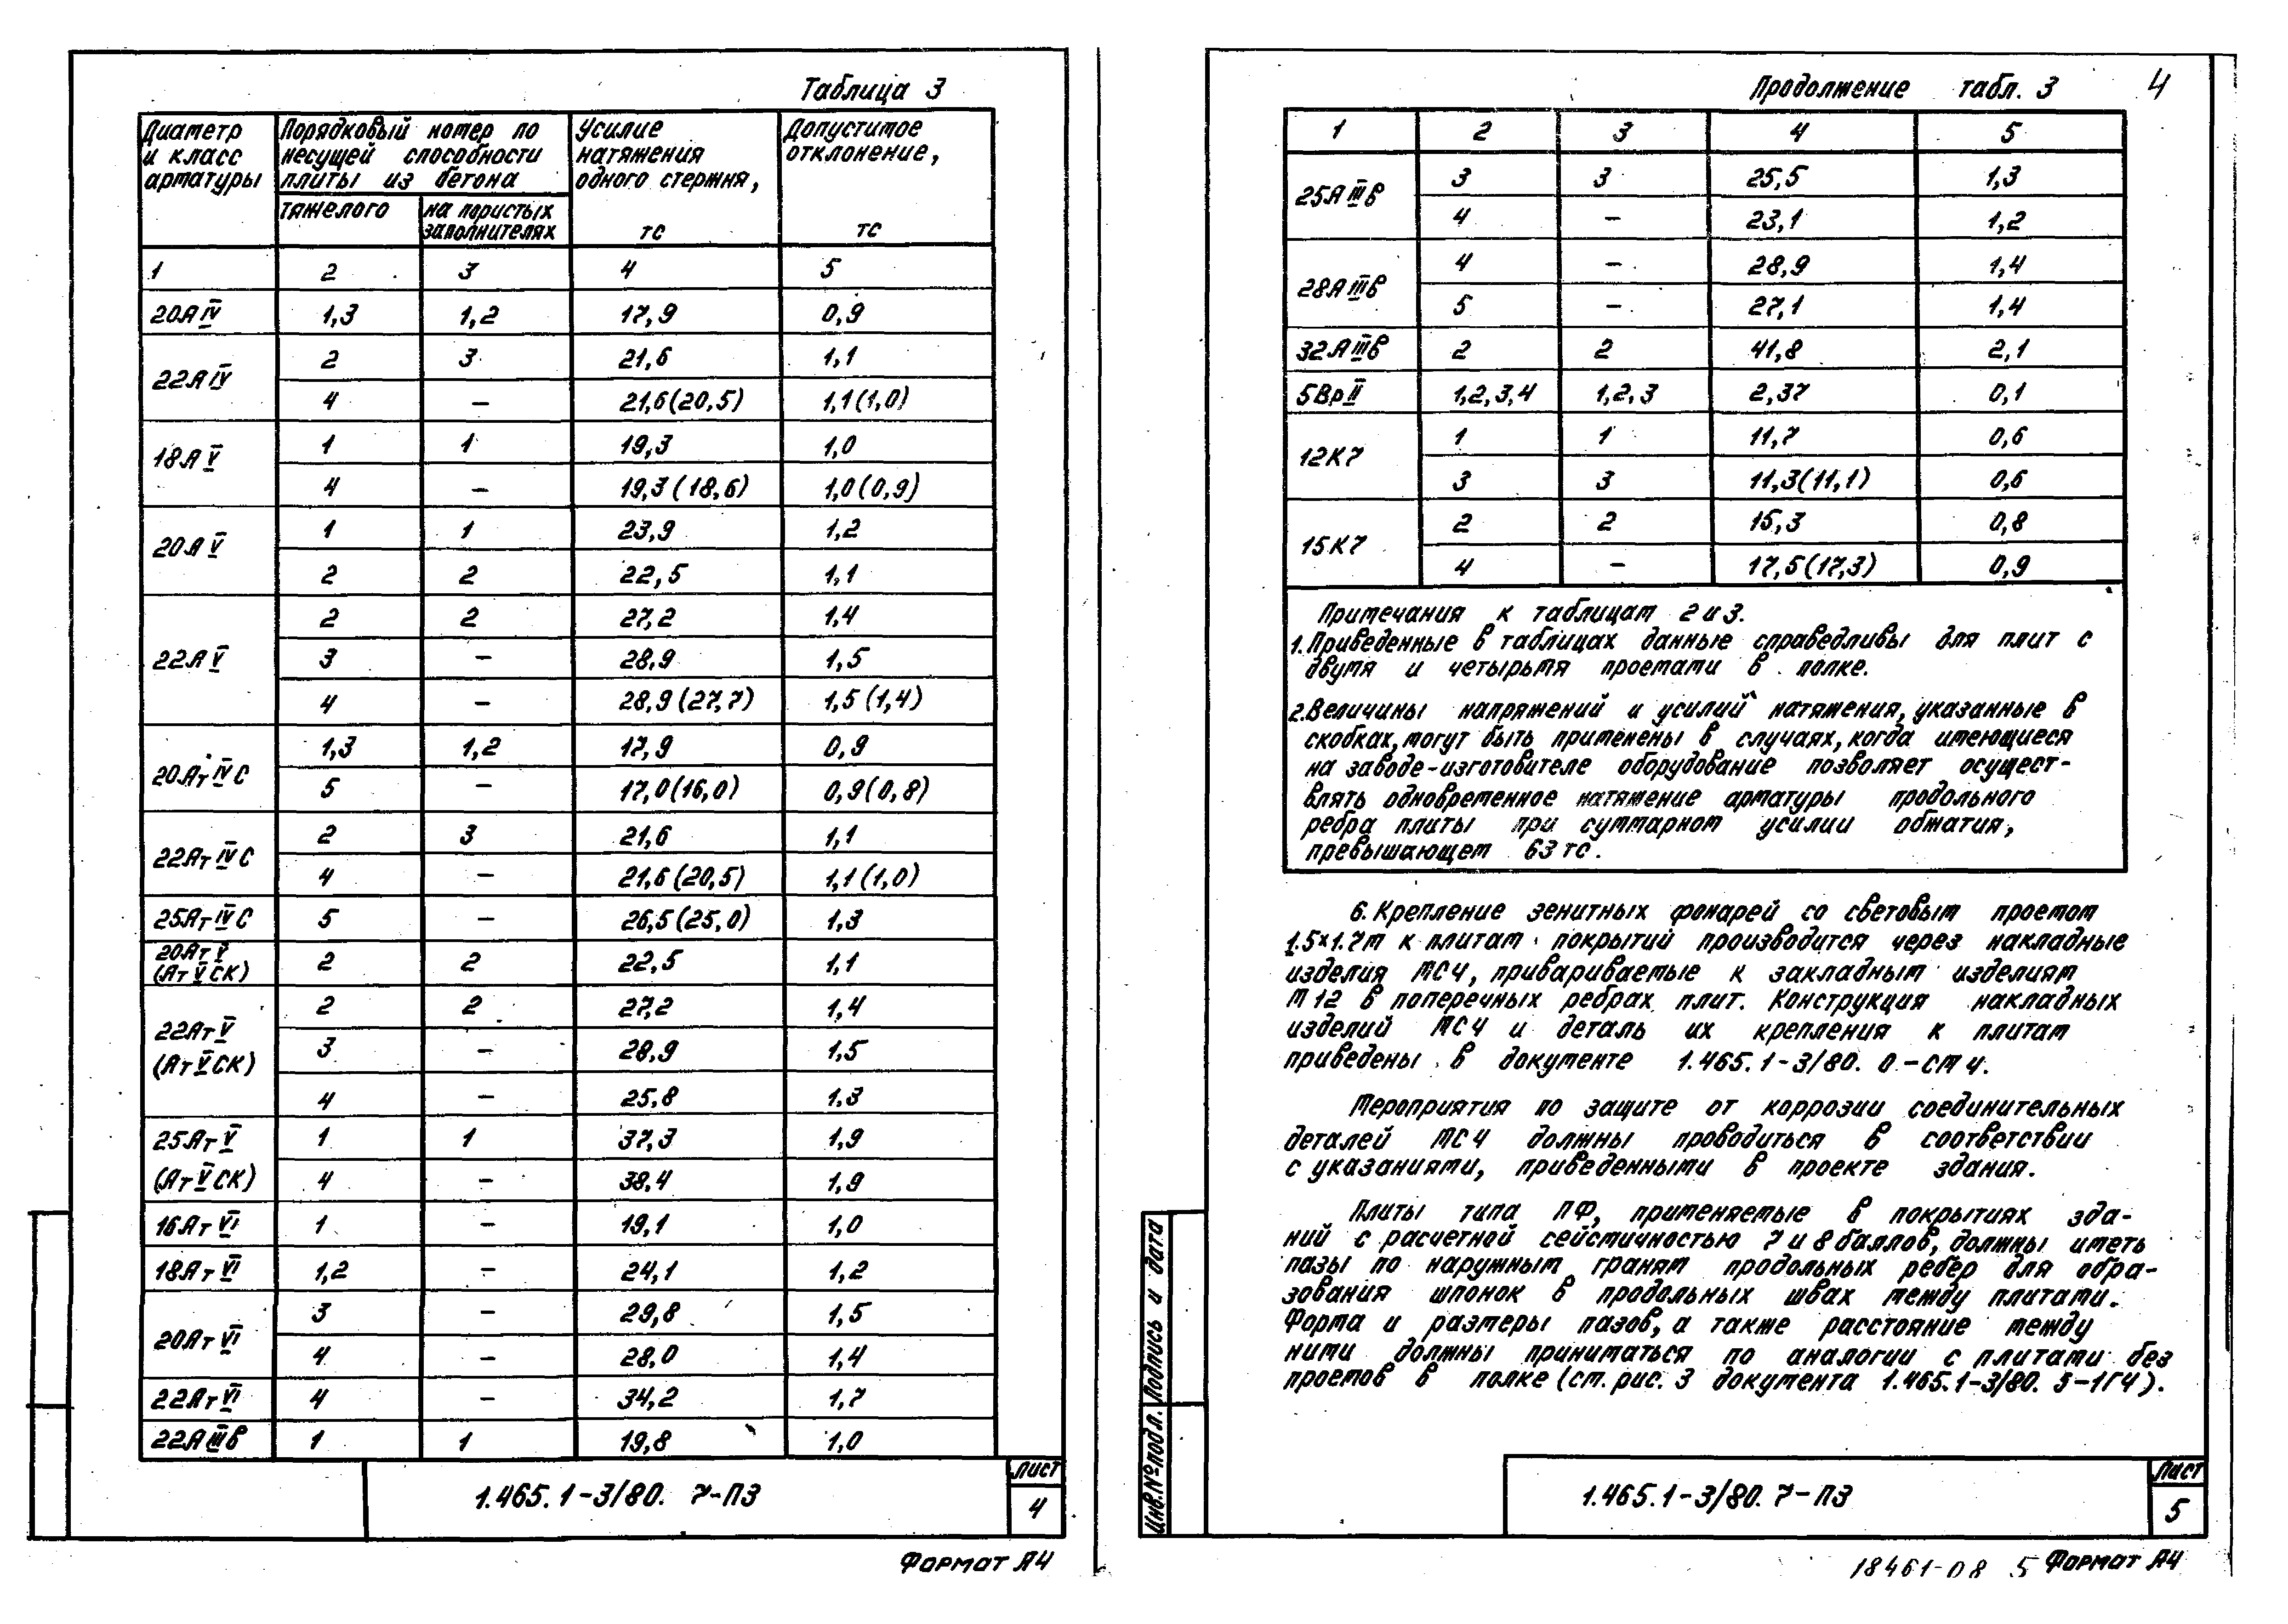 Таблица 3
Диаметр и класс арматуры | Порядковый номер по несущей способности плиты из бетона | Усилие натяжения одного стержня, тс | Допустимое отклонение, тс
тяжелого | на пористых заполнителях
1 | 2 | 3 | 4 | 5
20А IV | 1,3 | 1,2 | 17,9 | 0,9
22А IV | 2 | 3 | 21,6 | 1,1
4 | – | 21,6(20,5) | 1,1(1,0)
18А V | 1 | 1 | 19,3 | 1,0
4 | – | 19,3(18,6) | 1,0(0,9)
20А V | 1 | 1 | 23,9 | 1,2
2 | 2 | 22,5 | 1,1
22А V | 2 | 2 | 27,2 | 1,4
3 | – | 28,9 | 1,5
4 | – | 28,9(27,7) | 1,5(1,4)
20Ат IVС | 1,3 | 1,2 | 17,9 | 0,9
5 | – | 17,0(16,0) | 0,9(0,8)
22Ат IVС | 2 | 3 | 21,6 | 1,1
4 | – | 21,6(20,5) | 1,1(1,0)
25Ат IVС | 5 | – | 26,5(25,0) | 1,3
20Ат V (Ат V СК) | 2 | 2 | 22,5 | 1,1
22Ат V (Ат V СК) | 2 | 2 | 27,2 | 1,4
3 | – | 28,9 | 1,5
4 | – | 25,8 | 1,3
25Ат V (Ат V СК) | 1 | 1 | 37,3 | 1,9
4 | – | 38,4 | 1,9
16Ат VI | 1 | – | 19,1 | 1,0
18Ат VI | 1,2 | – | 24,1 | 1,2
20Ат VI | 3 | – | 29,8 | 1,5
4 | – | 28,0 | 1,4
22Ат VI | 4 | – | 34,2 | 1,7
22А IIIв | 1 | 1 | 19,8 | 1,0
1.465.1-3/80. 7-ПЗ
Лист
4
Формат А4
Продолжение табл. 3
4
1 | 2 | 3 | 4 | 5
25А IIIв | 3 | 3 | 25,5 | 1,3
4 | – | 23,1 | 1,2
28А IIIв | 4 | – | 28,9 | 1,4
5 | – | 27,1 | 1,4
32А IIIв | 2 | 2 | 41,8 | 2,1
5Вр II | 1,2,3,4 | 1,2,3 | 2,37 | 0,1
12К7 | 1 | 1 | 11,7 | 0,6
3 | 3 | 11,3(11,1) | 0,6
15К7 | 2 | 2 | 15,3 | 0,8
4 | – | 17,5(17,3) | 0,9
Примечания к таблицам 2 и 3.
1. Приведенные в таблицах данные справедливы для плит с
двумя и четырьмя проемами в полке.
2. Величины напряжений и усилий натяжения, указанные в
скобках, могут быть применены в случаях, когда имеющиеся
на заводе-изготовителе оборудование позволяет осущест-
влять одновременное натяжение арматуры продольного
ребра плиты при суммарном усилии обжатия,
превышающем 63 тс.
6. Крепление зенитных фонарей со световым проемом
1.5×1.7м к плитам покрытий производится через накладные
изделия МС4, привариваемые к закладным изделиям
М12 в поперечных ребрах плит. Конструкция накладных
изделий МС4 и деталь их крепления к плитам
приведены в документе 1.465.1-3/80. 0-СМ4.
Мероприятия по защите от коррозии соединительных
деталей МС4 должны проводиться в соответствии
с указаниями, приведенными в проекте здания.
Плиты типа ПФ, применяемые в покрытиях зда-
ний с расчетной сейсмичностью 7 и 8 баллов, должны иметь
пазы по наружным граням продольных ребер для обра-
зования шпонок в продольных швах между плитами.
Форма и размеры пазов, а также расстояние между
ними должны приниматься по аналогии с плитами без
проемов в полке (см. рис. 3 документа 1.465.1-3/80. 5-1ГЧ).
Инв.№подл. Подпись и дата
1.465.1-3/80. 7-ПЗ
Лист
5
18461-08 5 Формат А4